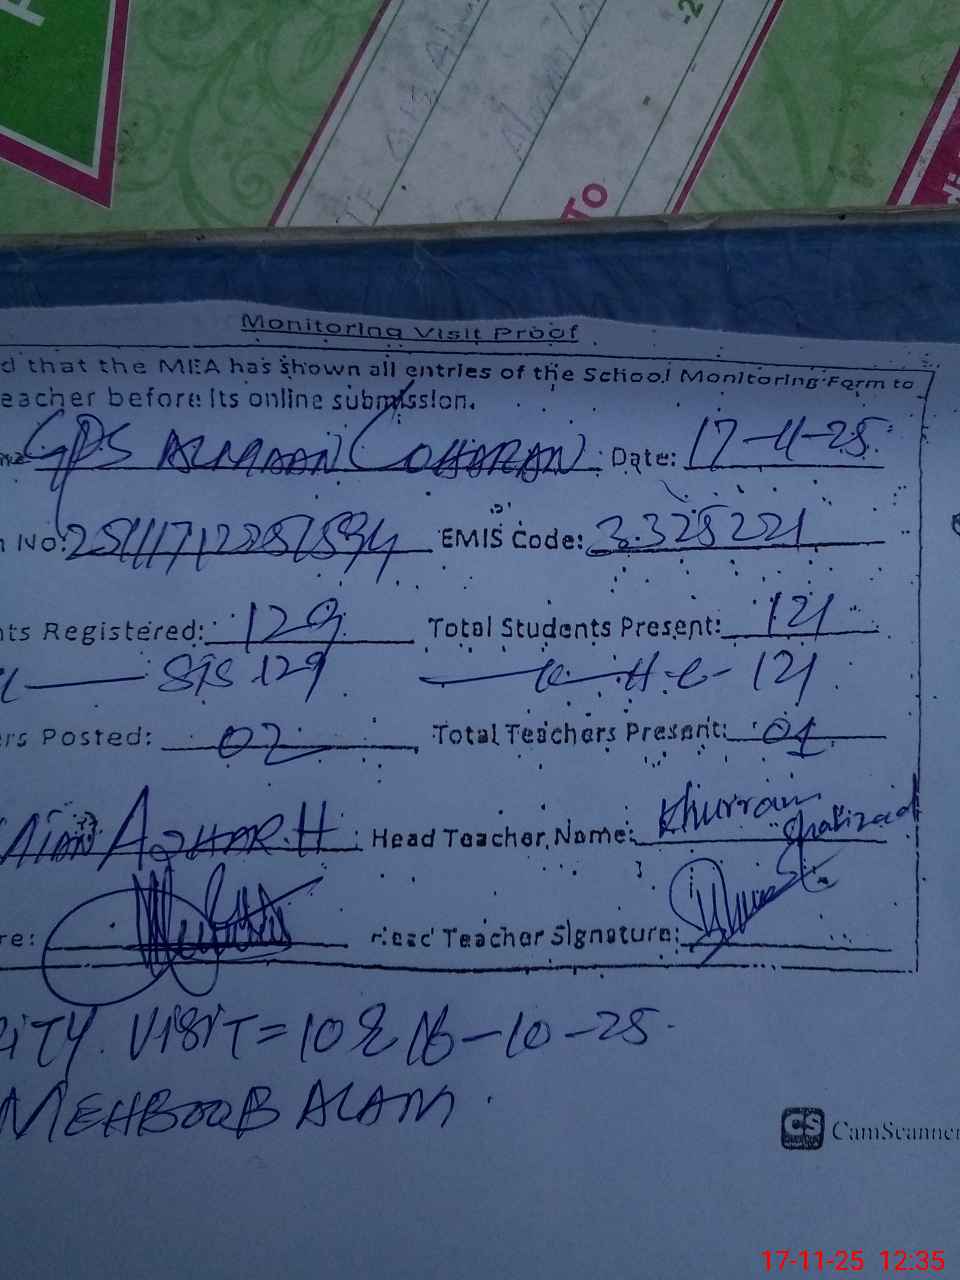 -2
To
Monitoring Visit Proof
d that the MEA has shown all entries of the School Monitoring Form to
eacher before its online submission.
GPS ALMAAN (OHARAN) Date: 17-11-25
No: EMIS Code: 33325221
nts Registered: 129 Total Students Present: 121
SIS 129 121
ers Posted: 02 Total Teachers Present: 01
AZHAR.H Head Teacher Name: Khurram Shahzad
re: Head Teacher Signature:
RITY. VISIT = 10 & 16-10-25
MEHBOOB ALAM.
CS CamScanner
17-11-25 12:35